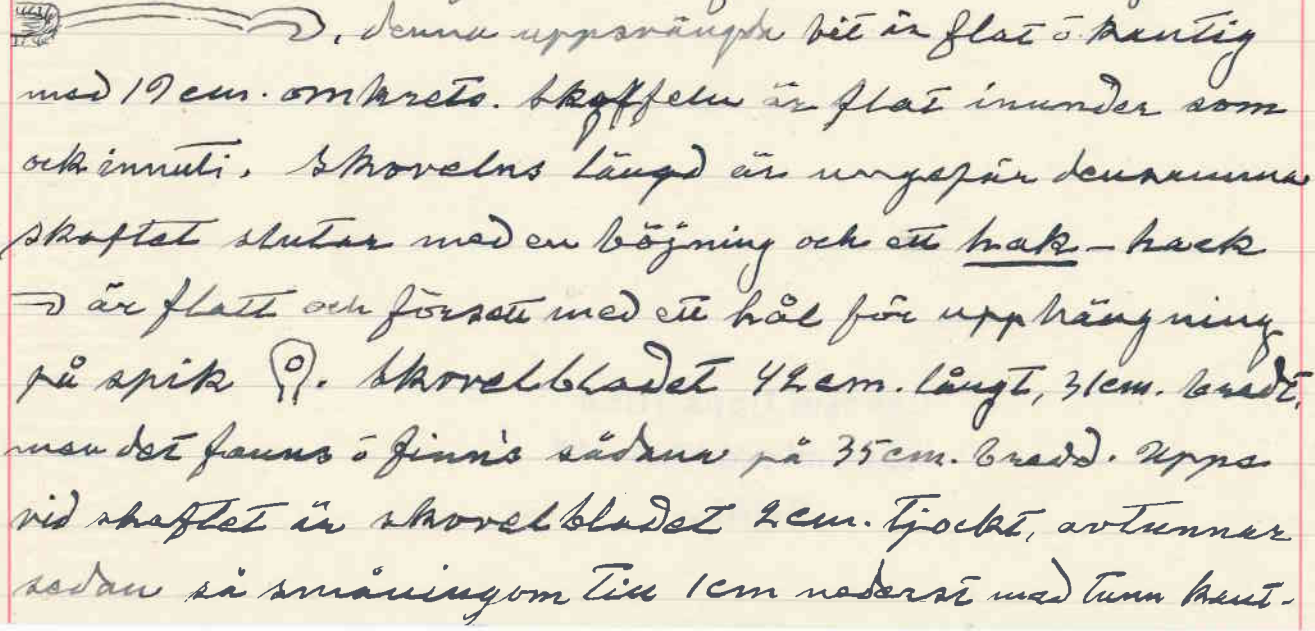 , denna uppsvängda bit är flat ö kantig
med 19 cm. omkrets. Skoffeln är flat inunder som
ock innuti. Skovelns längd är ungefär densamma
skaftet slutar med en böjning och ett hak – hack
är flatt och försett med ett hål för upphängning
på spik. Skovelbladet 42 cm. långt, 31 cm. bredt,
men det fanns ö finns sådana på 35 cm. bredd. Upps
vid skaftet är skovelbladet 2 cm. tjockt, avtunnar
sedan så småningom till 1 cm nederst med tunn kant-